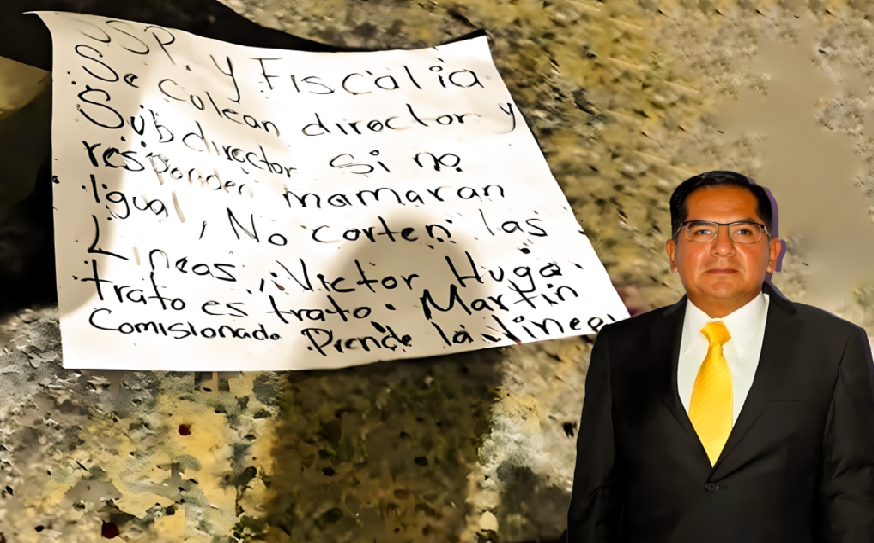 SSP. y Fiscalia
Se Culean director y
Subdirector Si no
responden mamaran
Igual, No corten las
Lineas, Victor Hugo
trato es trato. Martin
Comisionado Prende la linea